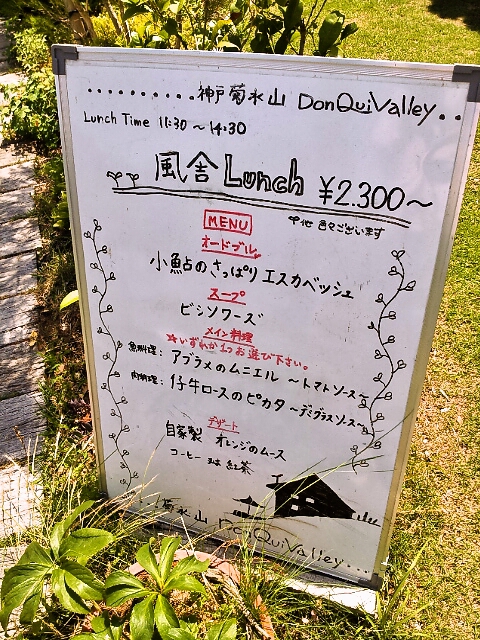 神戸菊水山 DonQuiValley
Lunch Time 11:30 ~ 14:30
風舎 Lunch ¥2.300~
他 色々ございます
MENU
オードブル
小鮎のさっぱりエスカベッシュ
スープ
ビシソワーズ
メイン料理
☆いずれか1つお選び下さい。
魚料理: アブラメのムニエル ~トマトソース~
肉料理: 仔牛ロースのピカタ ~デミグラスソース~
デザート
自家製 オレンジのムース
コーヒー 又は 紅茶
菊水山 DonQuiValley...